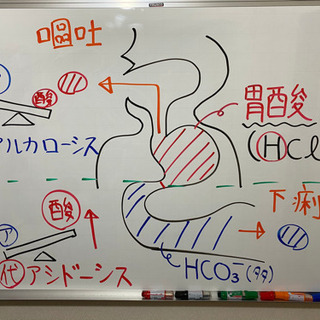 嘔吐
酸
アルカローシス
胃酸
(HCl
下痢
酸
ア
代アシドーシス
HCO₃⁻(アア)